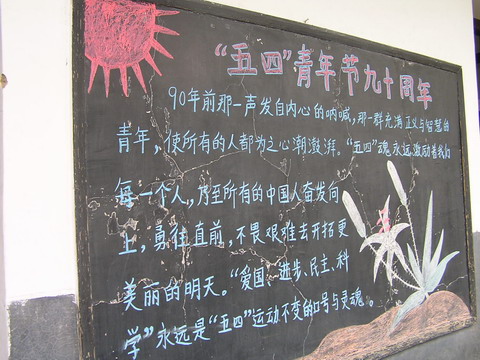 “五四”青年节九十周年
90年前那一声发自内心的呐喊，那一群充满正义与智慧的
青年，使所有的人都为之心潮澎湃。“五四”魂永远激励着我们
每一个人，乃至所有的中国人奋发向
上，勇往直前，不畏艰难去开拓更
美丽的明天。“爱国、进步、民主、科
学”永远是“五四”运动不变的口号与灵魂。